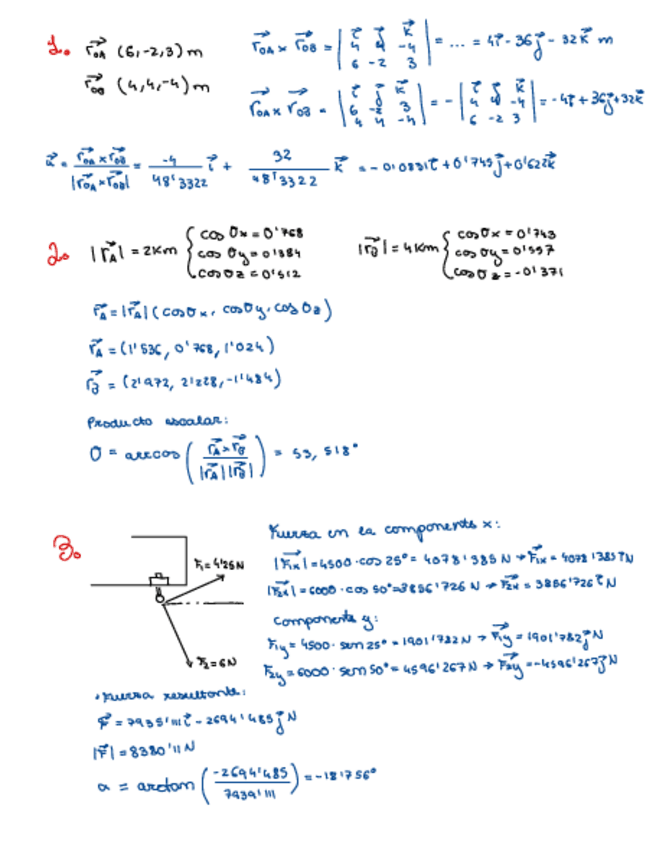 1. r⃗OA (6,-2,3) m
r⃗OB (4,4,-4) m
r⃗OA × r⃗OB = | i⃗ j⃗ k⃗ | = ... = 4i⃗ - 36j⃗ - 32k⃗ m
4 4 -4
6 -2 3
r⃗OA × r⃗OB = | i⃗ j⃗ k⃗ | = - | i⃗ j⃗ k⃗ | = -4i⃗ + 36j⃗ + 32k⃗
6 -2 3 4 4 -4
4 4 -4 6 -2 3
u⃗ = r⃗OA × r⃗OB / |r⃗OA × r⃗OB| = -4 / 48'3322 i⃗ + 32 / 48'3322 k⃗ = -0'0831i⃗ + 0'745j⃗ + 0'622k⃗
2. |r⃗A| = 2Km { cos θx = 0'768
cos θy = 0'384
cos θz = 0'512
|r⃗B| = 4Km { cos θx = 0'743
cos θy = 0'557
cos θz = -0'371
r⃗A = |r⃗A| (cos θx, cos θy, cos θz)
r⃗A = (1'536, 0'768, 1'024)
r⃗B = (2'972, 2'228, -1'484)
Producto escalar:
θ = arccos ( r⃗A × r⃗B / |r⃗A| |r⃗B| ) = 53,518°
3.
F₁ = 4'25N
F₂ = 6N
Fuerza en la componente x:
|F⃗1x| = 4500 · cos 25° = 4078'385 N → F⃗1x = 4078'385 i⃗ N
|F⃗2x| = 6000 · cos 50° = 3856'726 N → F⃗2x = 3856'726 i⃗ N
Componente y:
F1y = 4500 · sen 25° = 1901'782 N → F⃗1y = 1901'782 j⃗ N
F2y = 6000 · sen 50° = 4596'267 N → F⃗2y = -4596'267 j⃗ N
· Fuerza resultante:
F⃗ = 7935'111 i⃗ - 2694'485 j⃗ N
|F⃗| = 8380'11 N
α = arctan ( -2694'485 / 7939'111 ) = -18'756°